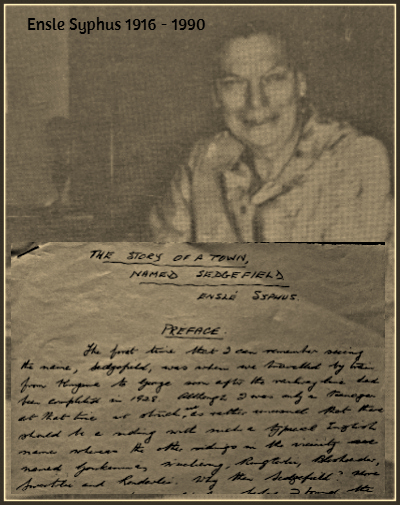 Ensle Syphus 1916 - 1990
THE STORY OF A TOWN,
NAMED SEDGEFIELD
ENSLÉ SYPHUS.
PREFACE.
The first time that I can remember seeing
the name, Sedgefield, was when we travelled by train
from Knysna to George soon after the railway line had
been completed in 1928. Although I was only a teenager
at that time at school, was rather concerned that there
should be a siding with such a typical English
name whereas the other sidings in the vicinity were
named Goukamma, Ruigtevlei, Bleshoender,
Swartvlei and Rondevlei. Why then "Sedgefield"
I found the